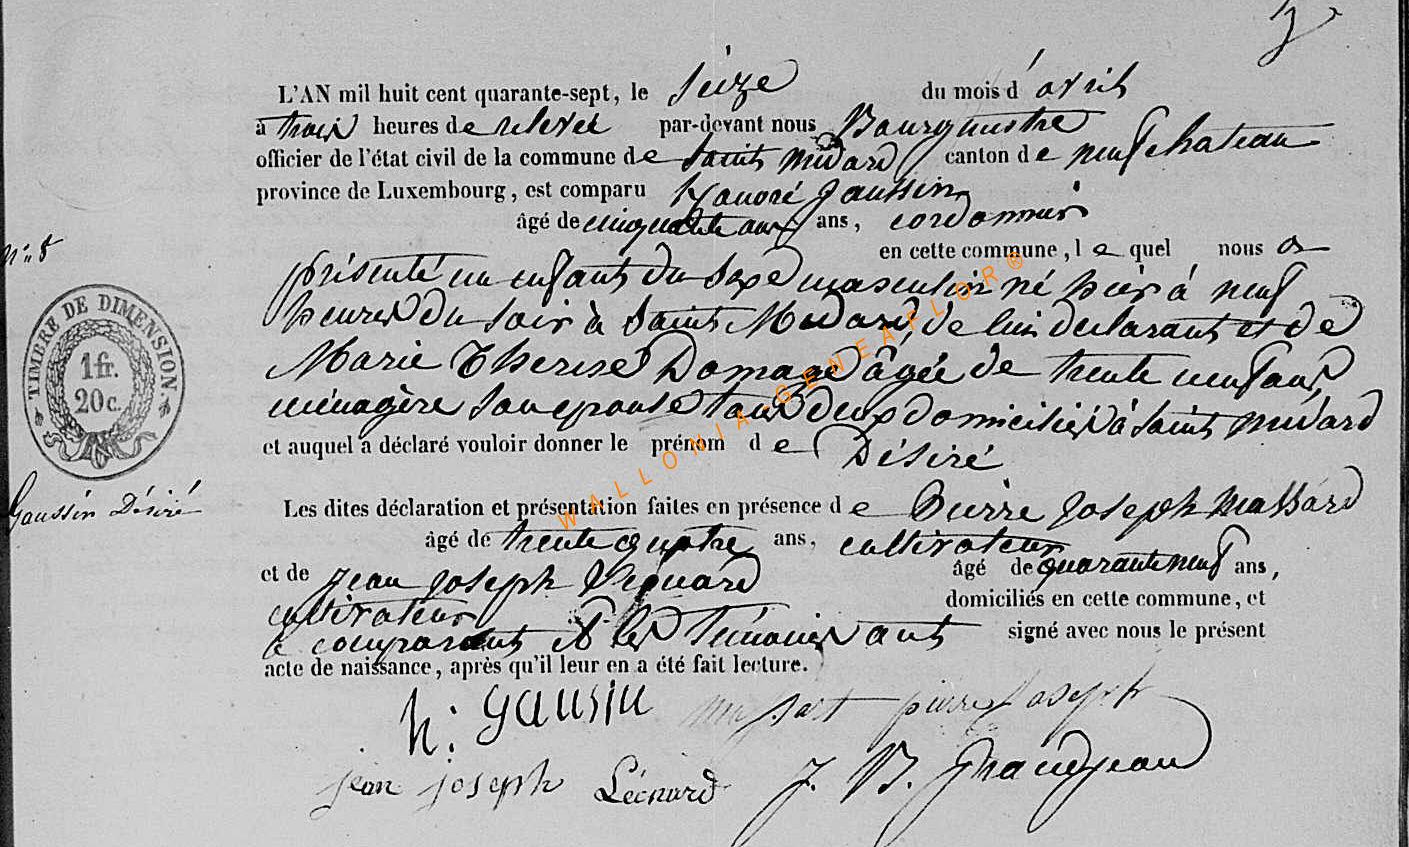 L'AN mil huit cent quarante-sept, le seize du mois d'avril
à trois heures de relevée par-devant nous Bourgmestre
officier de l'état civil de la commune de Saint Médard canton de neufchateau
province de Luxembourg, est comparu honoré Gaussin
âgé de cinquante ans, cordonnier
N° 8
en cette commune, lequel nous a
présenté un enfant du Sexe masculin né hier à neuf
heures du soir à Saint Médard, de lui déclarant et de
Marie Thérèse Domage âgée de trente neuf ans
ménagère son epouse tous deux domiciliés à Saint médard
et auquel a déclaré vouloir donner le prénom de Désiré
TIMBRE DE DIMENSION.
1 fr.
20 c.
Gaussin Désiré
Les dites déclaration et présentation faites en présence de Pierre Joseph Massard
âgé de trente quatre ans, cultivateur
et de Jean Joseph Léonard âgé de quarante neuf ans,
cultivateur domiciliés en cette commune, et
le comparant et les témoins ont signé avec nous le présent
acte de naissance, après qu'il leur en a été fait lecture.
h: gausin
pierre Joseph
jean joseph Léonard
J. B. Grandjean
WALLONIA-GENEAFLOR®